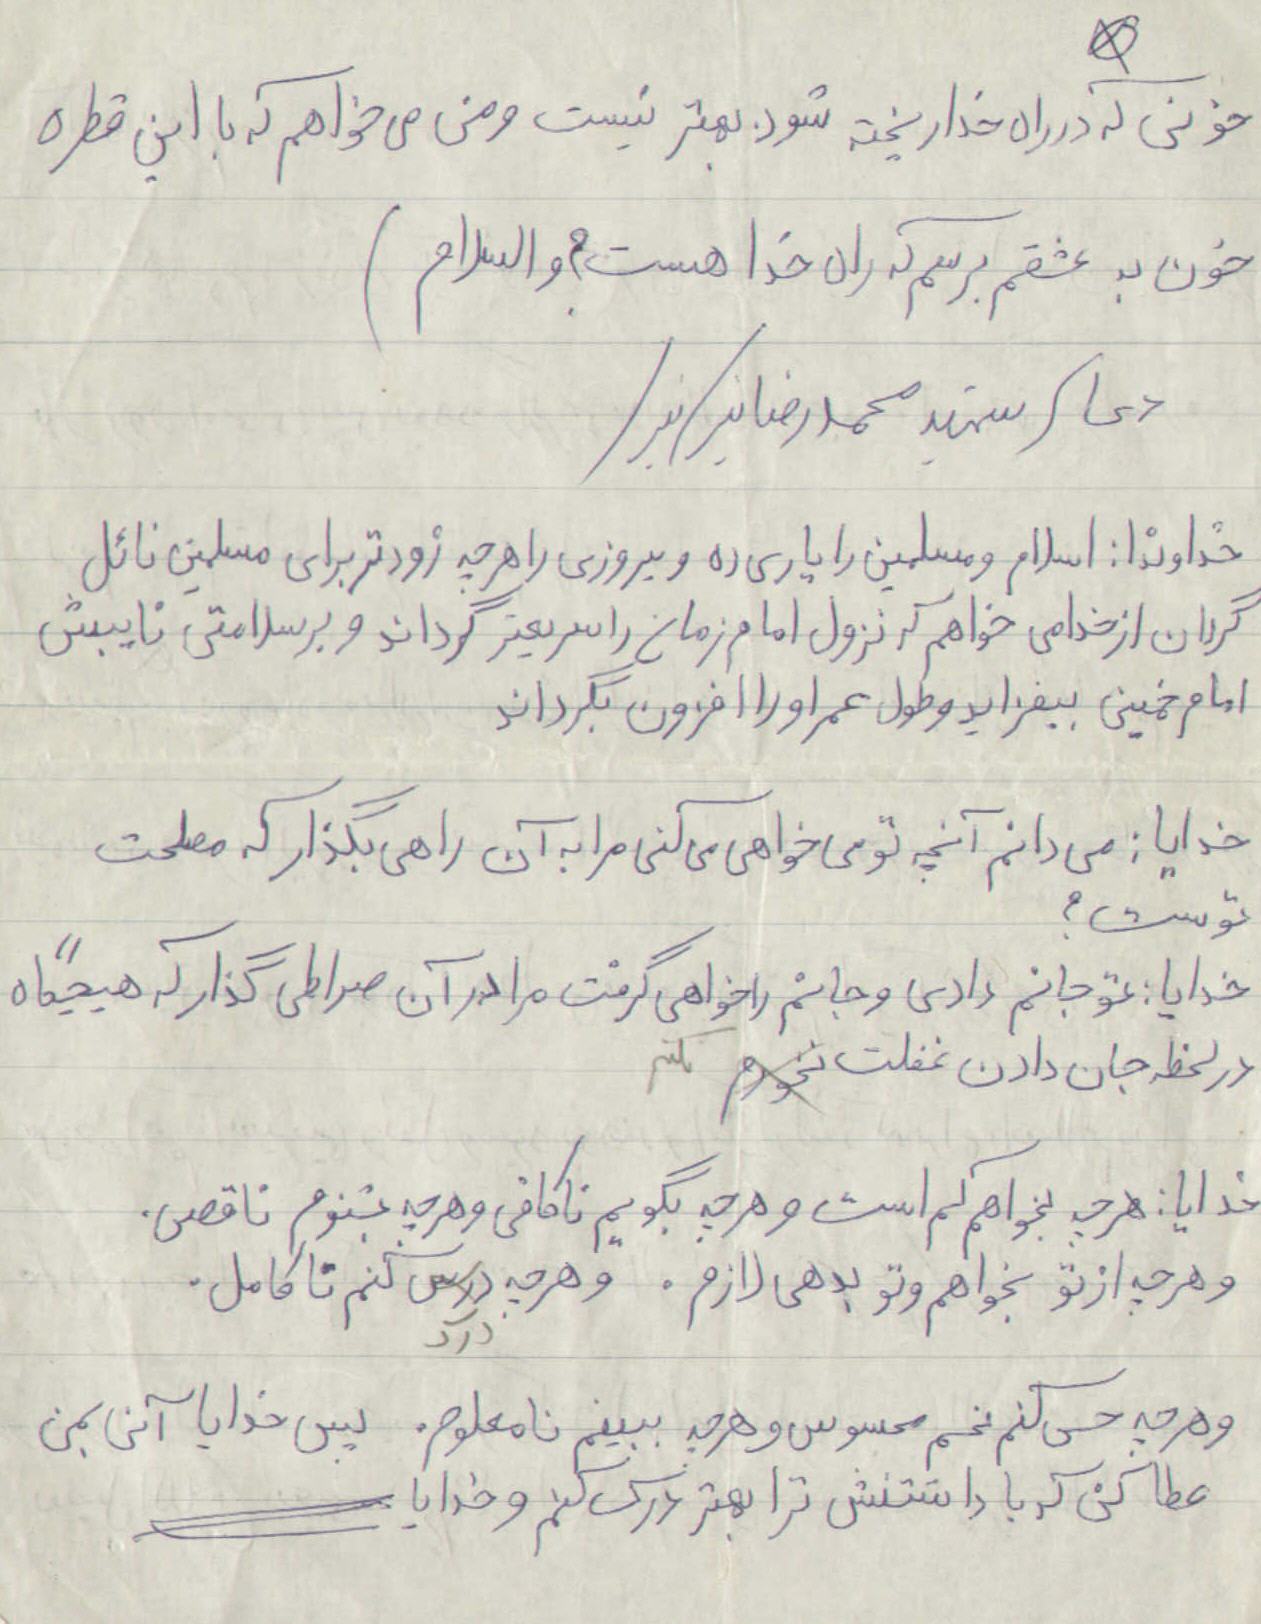 خونی که در راه خدا ریخته شود. بهتر نیست و من می خواهم که با این قطره
خون به عشقم برسم که راه خدا هست؟ والسلام )
دعا از شهید محمدرضا
خداوندا: اسلام و مسلمین را یاری ده و پیروزی را هر چه زودتر برای مسلمین نائل
گردان از خدا می خواهم که نزول امام زمان را سریعتر گرداند و بر سلامتی نایبش
امام خمینی بیفزاید و طول عمر او را افزون بگرداند
خدایا: می دانم آنچه تو می خواهی می کنی مرا به آن راهی بگذار که مصلحت
توست؟
خدایا: تو جانم دادی و جانم را خواهی گرفت مرا در آن صراطی گذار که هیچگاه
در لحظه جان دادن غفلت نخورم نکنم
خدایا: هر چه بخواهم کم است و هر چه بگویم ناکافی و هر چه بشنوم ناقص.
و هر چه از تو بخواهم و تو بدهی لازم. و هر چه درس کنم نا کامل.
درک
و هر چه حس کنم محسوس و هر چه ببینم نامعلوم. پس خدایا آنی بمن
عطا کن که با داشتنش ترا بهتر درک کنم و خدایا